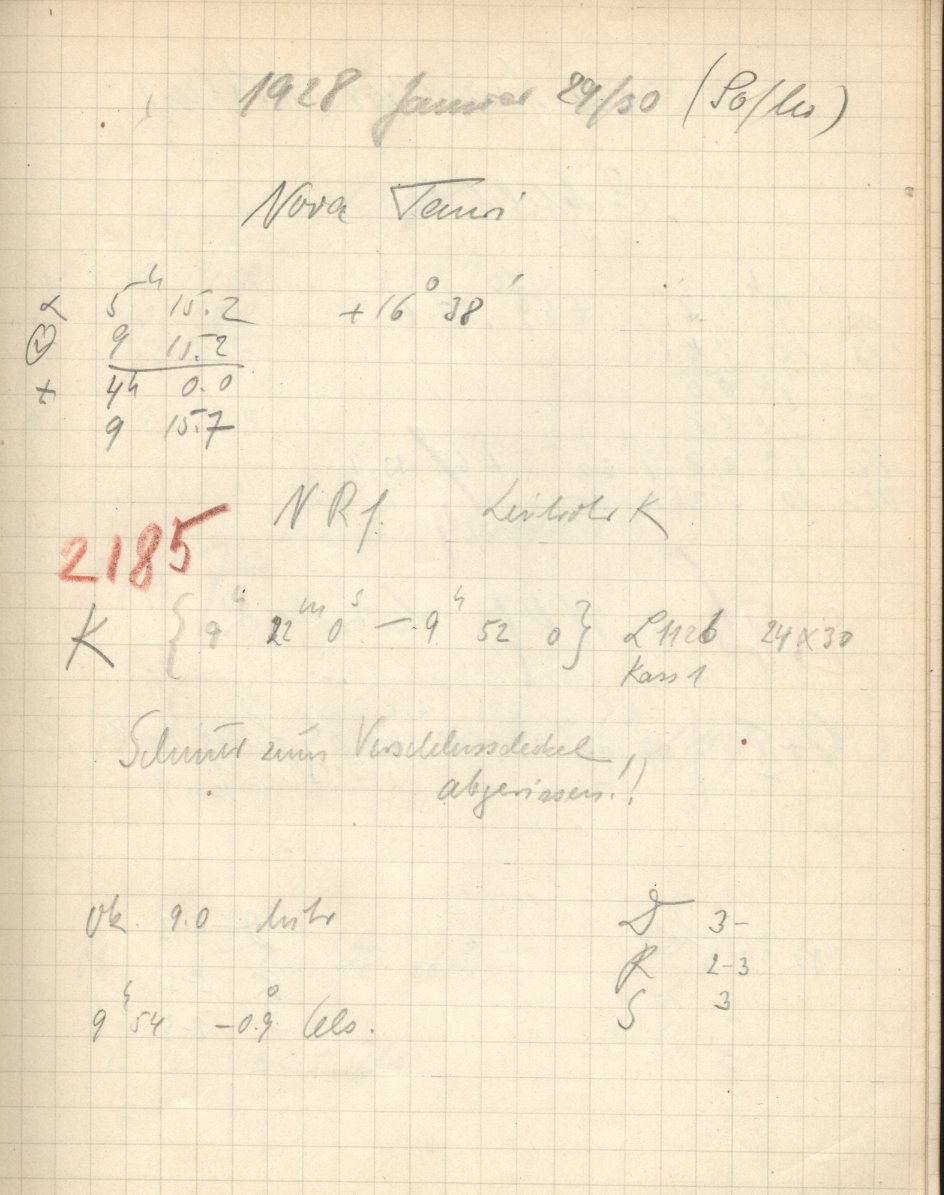 1928 Januar 29/30 (So/Mo)
Nova Tauri
α 5h 15.2 +16° 38'
9 15.2
+ 4h 0.0
9 15.7
N Rf. Leitrohr K
2185
K {9h 22m 0s – 9h 52 0} L 112b 24x30
Kass 1
Schnur zum Verschlussdeckel
abgerissen!!
Ok. 9.0 Mitr
D 3-
R 2-3
9h 54 -0.9° Cels.
S 3